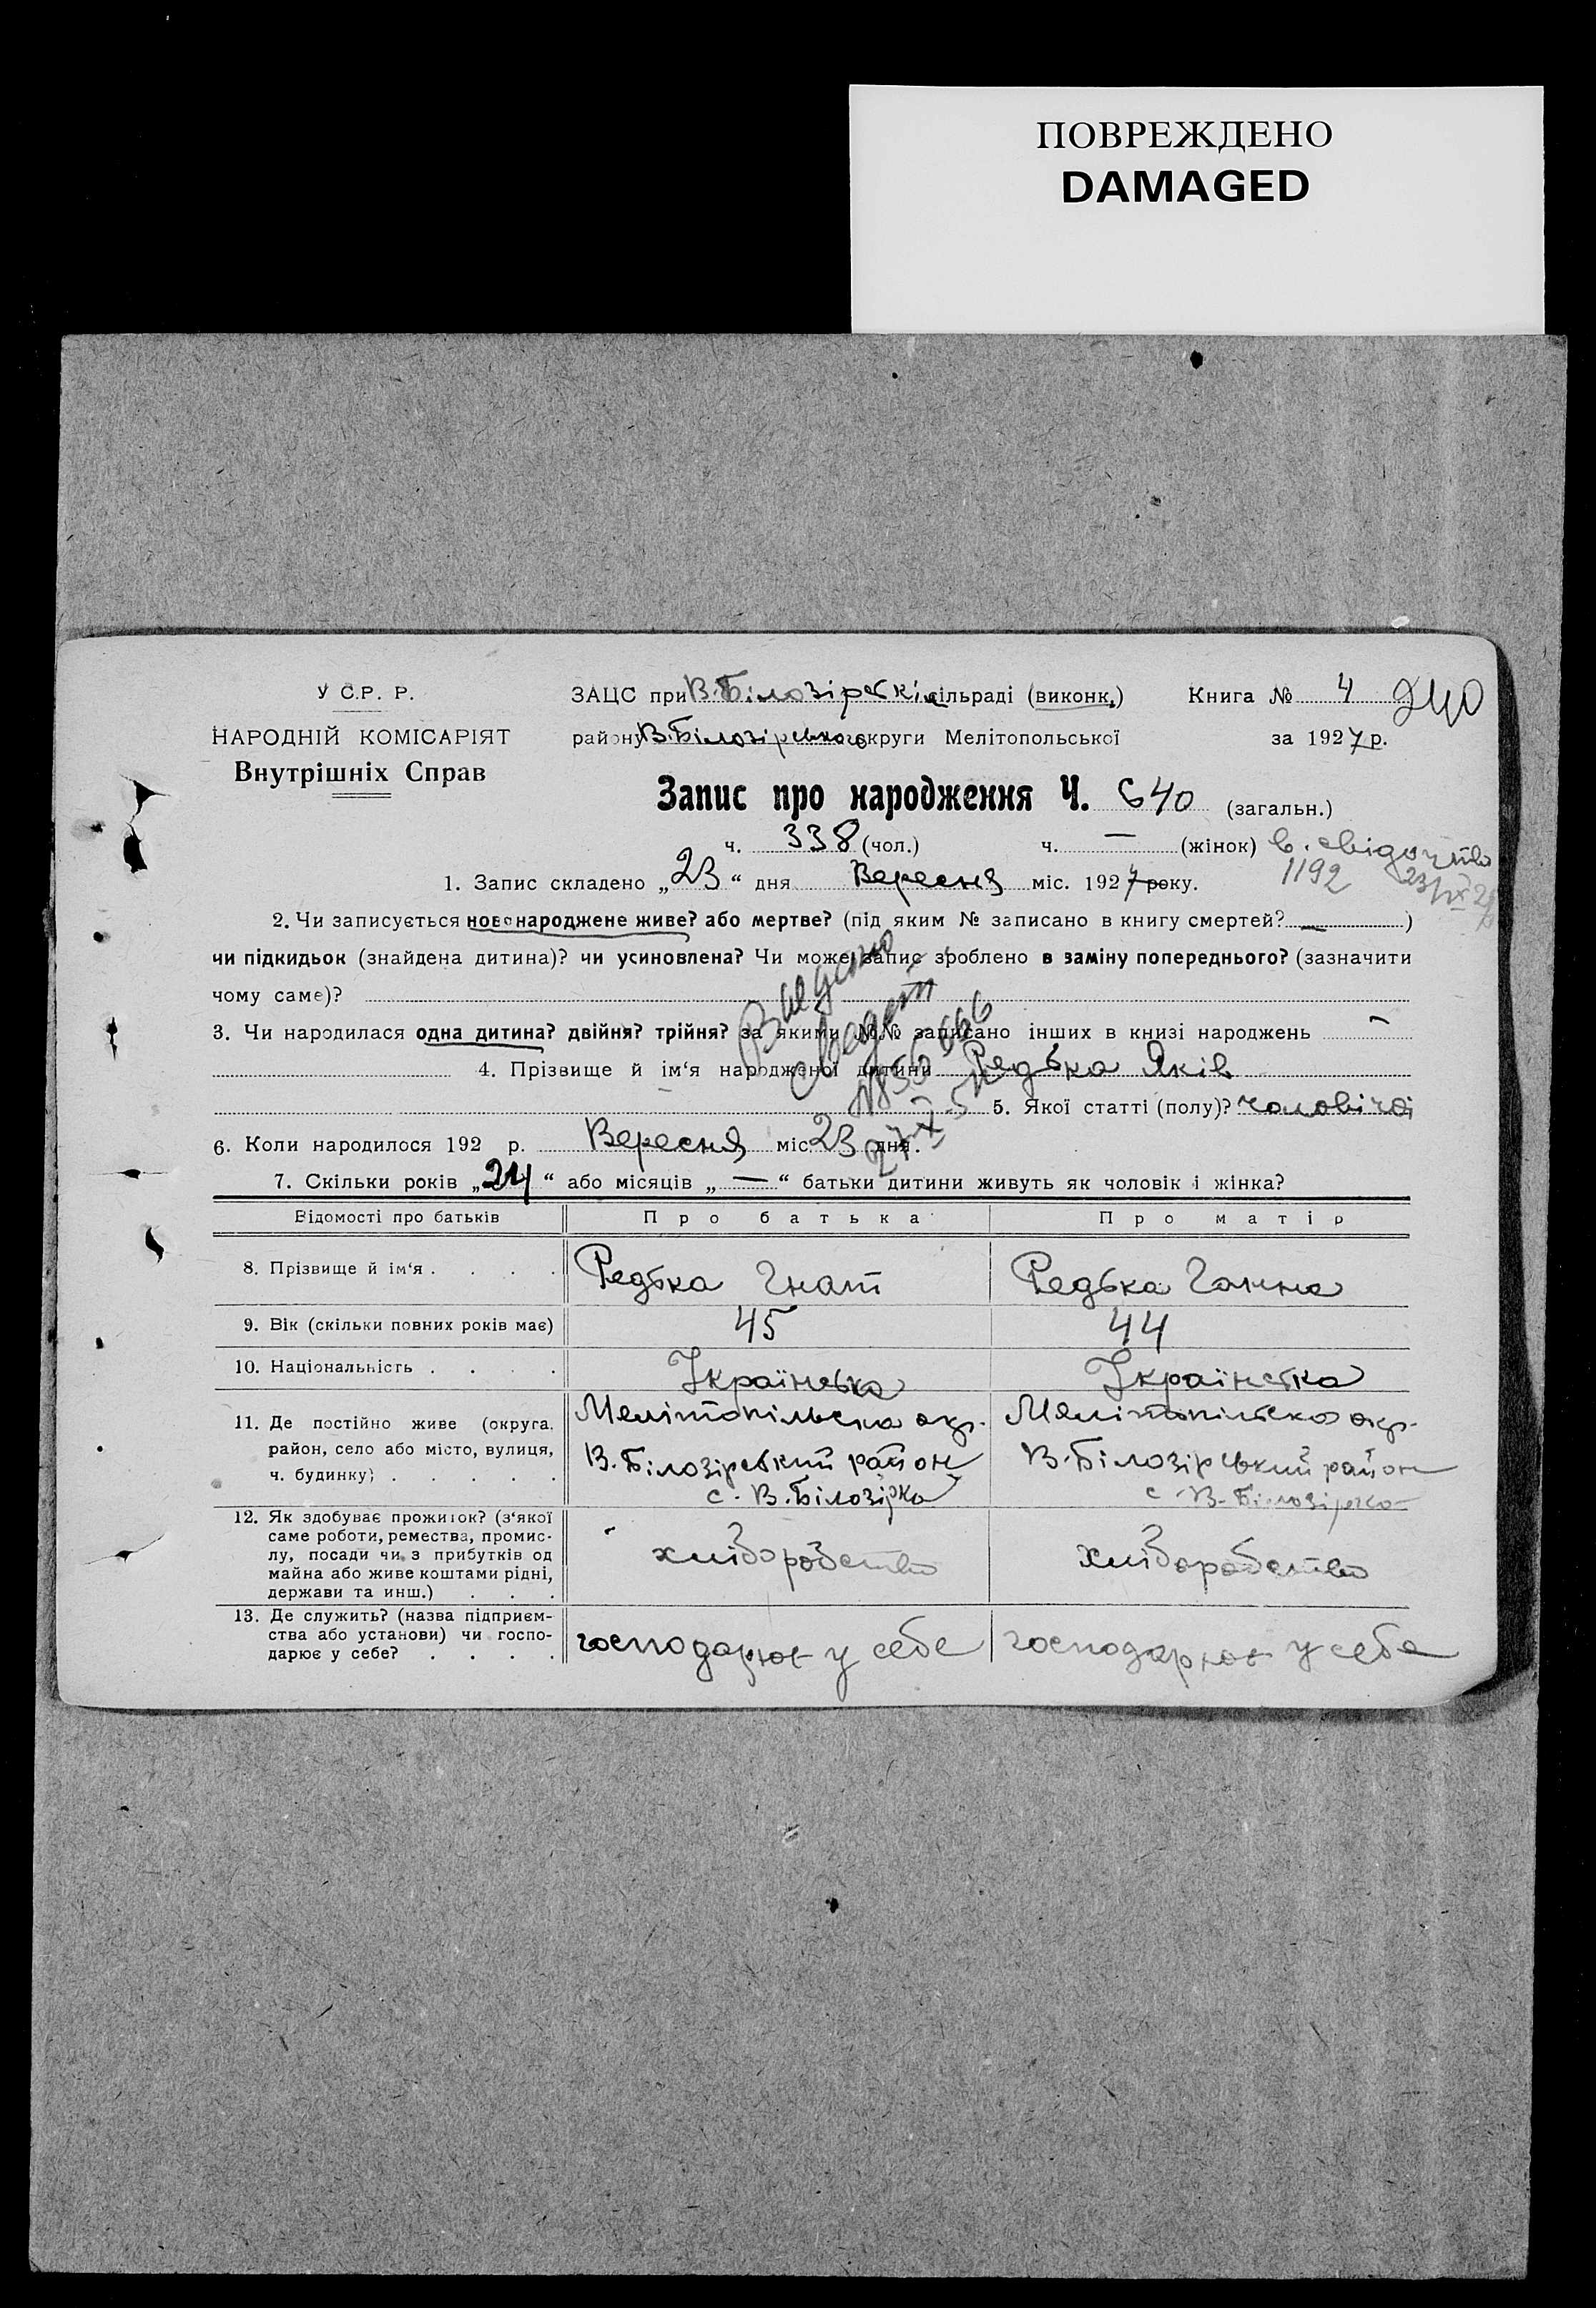 ПОВРЕЖДЕНО
DAMAGED
У С.Р. Р.
НАРОДНІЙ КОМІСАРІЯТ
Внутрішніх Справ
ЗАЦС при В.Білозірській сільраді (виконк.) Книга № 4 240
району В.Білозірського округи Мелітопольської за 1927 р.
Запис про народження Ч. 640 (загальн.)
ч. 338 (чол.) ч. — (жінок) в. свідоцтво
1192 23/IX 27
1. Запис складено „23“ дня Вересня міс. 1927 року.
2. Чи записується новонароджене живе? або мертве? (під яким № записано в книгу смертей? — )
чи підкидьок (знайдена дитина)? чи усиновлена? Чи може запис зроблено в заміну попереднього? (зазначити
чому саме)?
3. Чи народилася одна дитина? двійня? трійня? за якими №№ записано інших в книзі народжень —
4. Прізвище й ім'я народженої дитини Редька Яків
5. Якої статті (полу)? чоловічої
6. Коли народилося 192 р. Вересня міс. 23 дня.
7. Скільки років „24“ або місяців „—“ батьки дитини живуть як чоловік і жінка?
Відомості про батьків Про батька Про матір
8. Прізвище й ім'я . . . . Редька Гнат Редька Ганна
9. Вік (скільки повних років має) 45 44
10. Національність . . . . Українська Українська
11. Де постійно живе (округа, Мелітопільська окр. Мелітопільська окр.
район, село або місто, вулиця, В.Білозірський район В.Білозірський район
ч. будинку) . . . . . с. В.Білозірка с. В.Білозірка
12. Як здобуває прожиток? (з'якої
саме роботи, ремества, промис-
лу, посади чи з прибутків од хліборобство хліборобство
майна або живе коштами рідні,
держави та инш.) . . .
13. Де служить? (назва підприєм-
ства або установи) чи госпо- господарює у себе господарює у себе
дарює у себе? . . . .